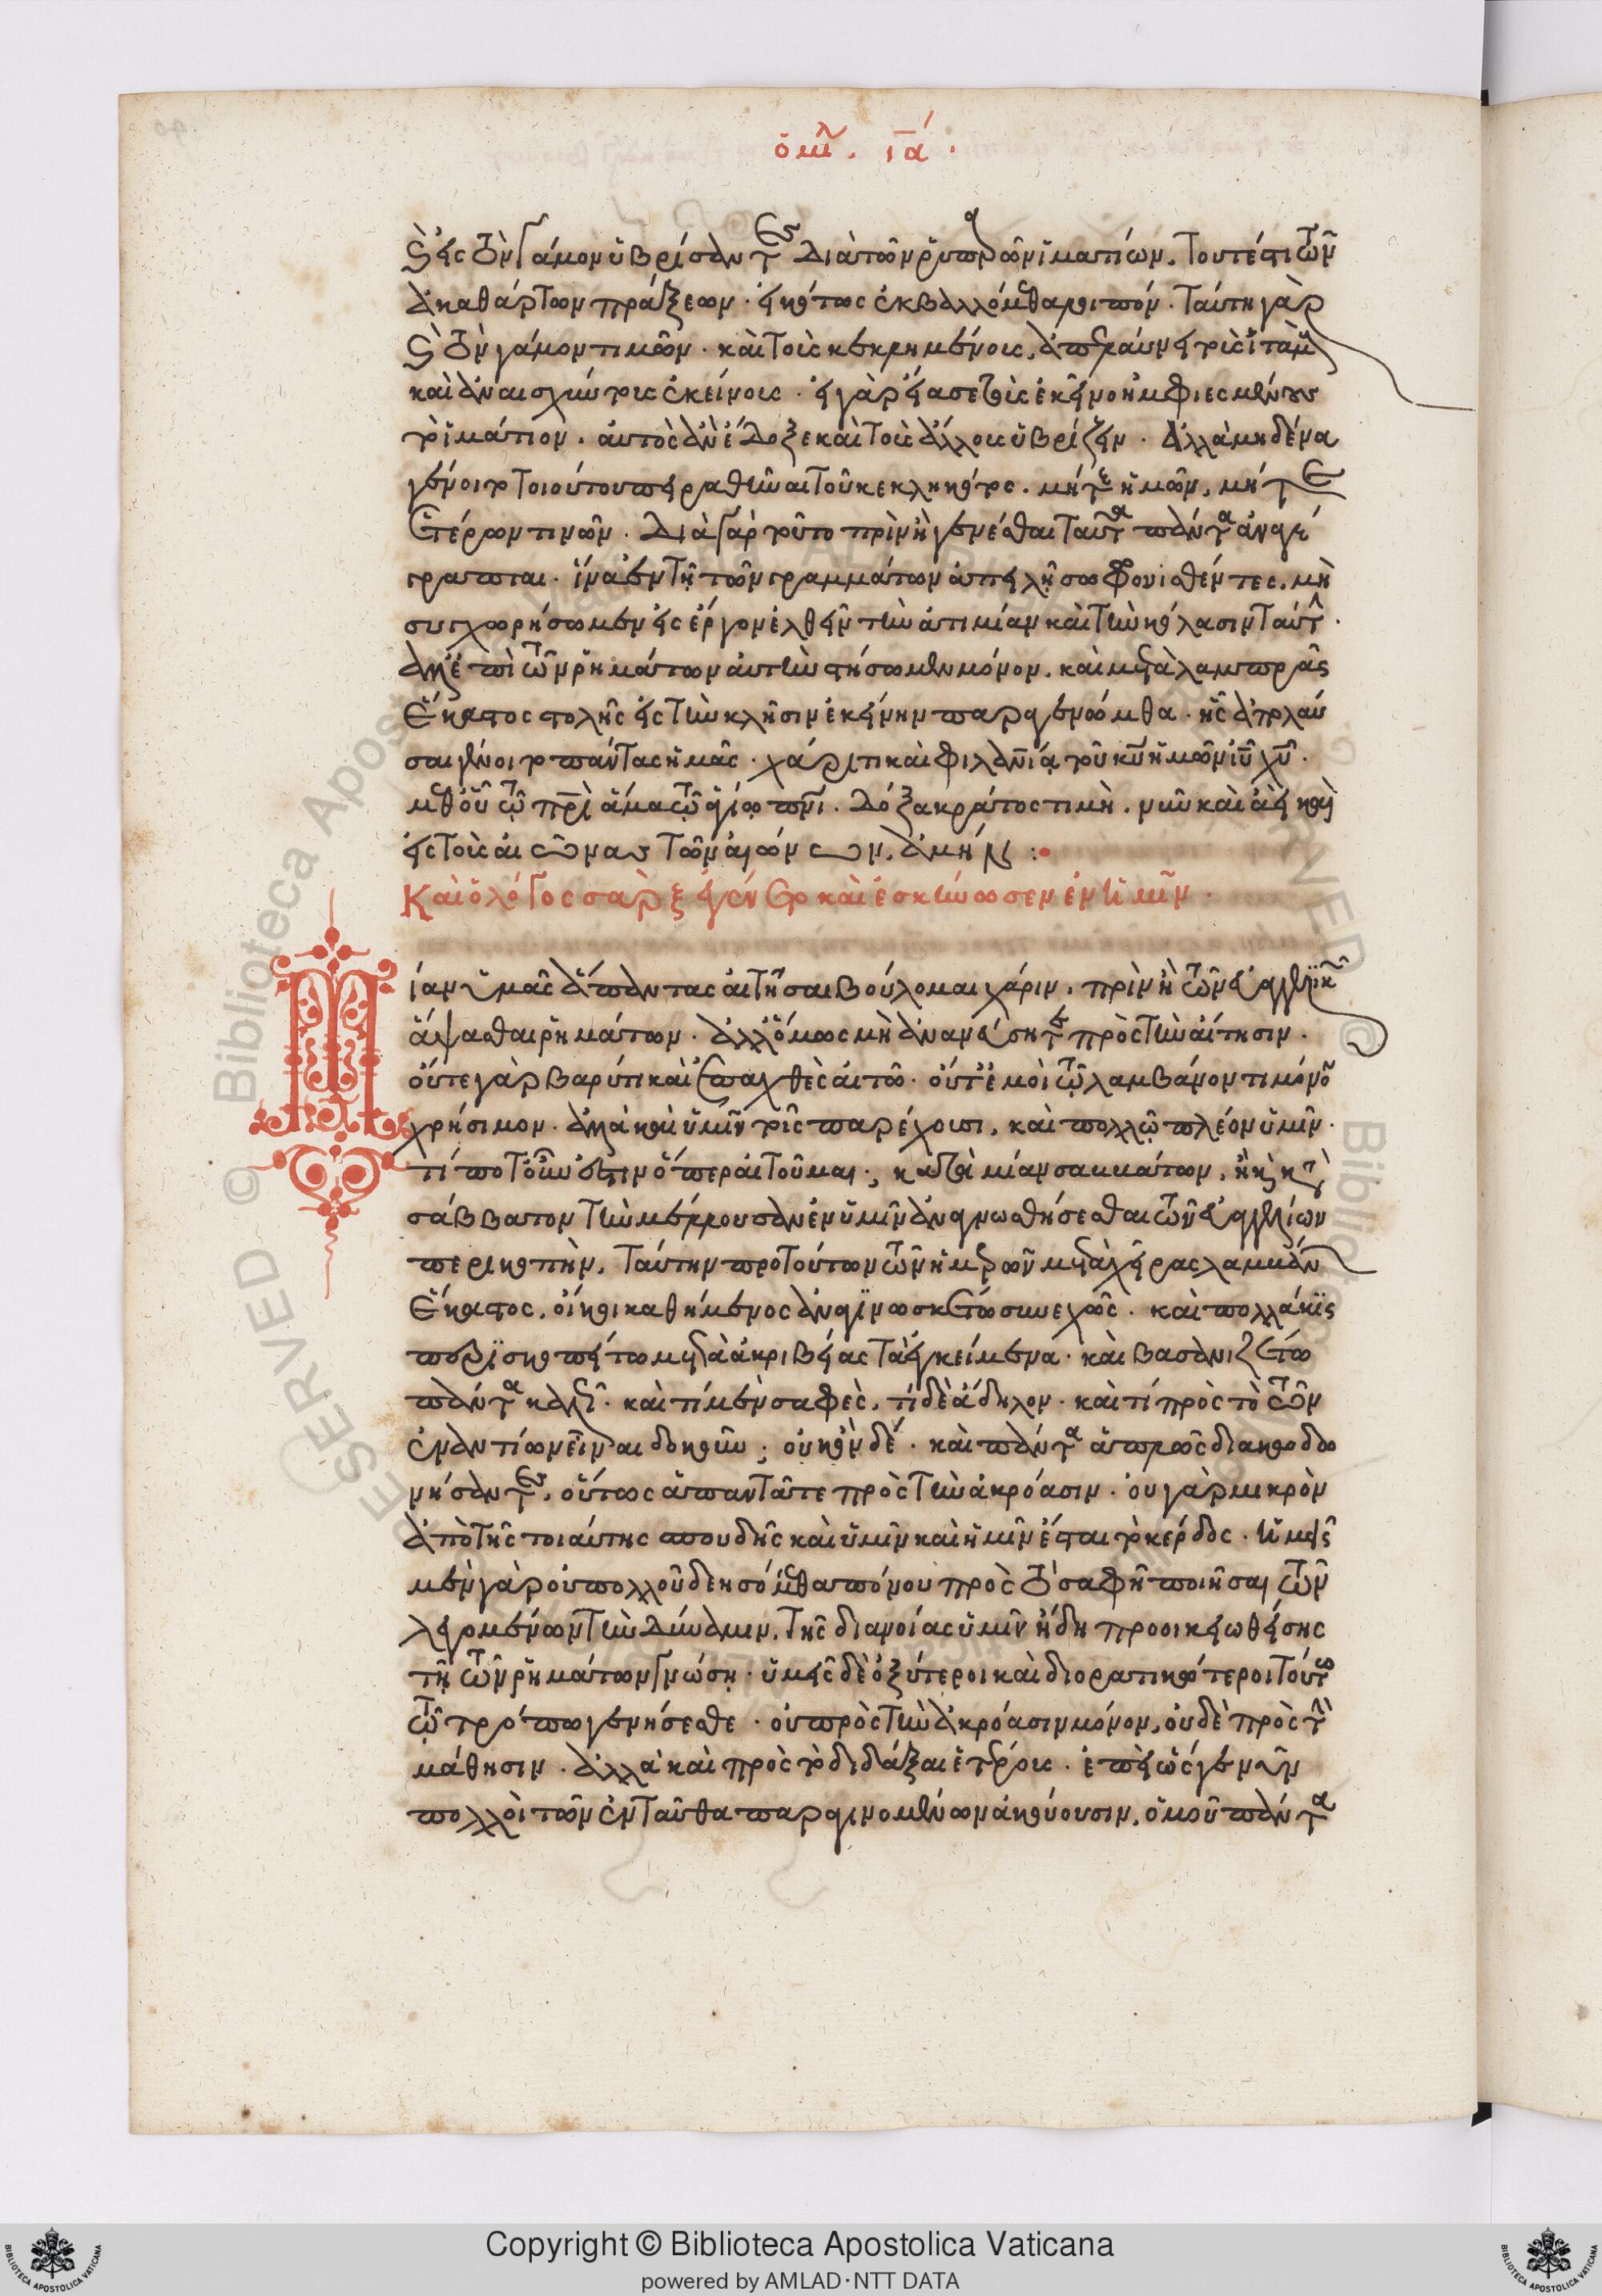 ὁμιλ. ια΄.
καὶ εἰς τὸν γάμον ὑβρίσαντες διὰ τῶν ῥυπαρῶν ἱματίων. τουτέστι τῶν
ἀκαθάρτων πράξεων. εἰκότως ἐκβαλλόμεθα λοιπόν. ταύτη γὰρ
καὶ τὸν γάμον τιμῶν. καὶ τοὺς κεκλημένους, ἀπελαύνει τοὺς ἰταμοὺς
καὶ ἀναισχύντους ἐκείνους. εἰ γὰρ εἴασε τοὺς ἐκεῖνο ἠμφιεσμένους
τὸ ἱμάτιον. αὐτὸς ἂν ἔδοξε καὶ τοὺς ἄλλους ὑβρίζειν. ἀλλὰ μηδένα
γένοιτο τοιούτου πειραθῆναι τοῦ κεκληκότος. μήτε ἡμῶν, μήτε
ἑτέρων τινῶν. διὰ γὰρ τοῦτο πρὶν ἢ γενέσθαι ταῦτα πάντα ἀναγέ
γραπται. ἵνα ἐν τῇ τῶν γραμμάτων ἀπειλῇ σωφρονισθέντες. μὴ
συγχωρήσωμεν εἰς ἔργον ἐλθεῖν τὴν ἀτιμίαν καὶ τὴν κόλασιν ταύτην.
ἀλλ' ἐπὶ τῶν ῥημάτων αὐτὴν στήσωμεν μόνον. καὶ μετὰ λαμπρᾶς
ἕκαστος στολῆς εἰς τὴν κλῆσιν ἐκείνην παραγενώμεθα. ἧς ἀπολαῦ
σαι γένοιτο πάντας ἡμᾶς. χάριτι καὶ φιλανίᾳ τοῦ κυ ἡμῶν ιυ χυ.
μεθ' οὗ τῷ πρὶ ἅμα τῷ ἁγίῳ πνι. δόξα κράτος τιμὴ. νῦν καὶ ἀεὶ καὶ
εἰς τοὺς αἰῶνας τῶν αἰώνων. ἀμήν:
Καὶ ὁ λόγος σὰρξ ἐγένετο καὶ ἐσκήνωσεν ἐν ἡμῖν.
Μίαν ὑμᾶς ἅπαντας αἰτῆσαι βούλομαι χάριν. πρὶν ἢ τῶν εὐαγγελικῶν
ἅψασθαι ῥημάτων. ἀλλ' ὅμως μὴ ἀνανεύσητε πρὸς τὴν αἴτησιν.
οὔτε γὰρ βαρύ τι καὶ ἐπαχθὲς αἰτῶ. οὔτ' ἐμοὶ τῷ λαμβάνοντι μόνον
χρήσιμον. ἀλλὰ καὶ ὑμῖν τοῖς παρέχουσι. καὶ πολλῷ πλέον ὑμῖν.
τί ποτ' οὖν ἐστιν ὅπερ αἰτοῦμαι; κατὰ μίαν σαββάτων, ἢ καὶ κατὰ
σάββατον τὴν μέλλουσαν ἐν ὑμῖν ἀναγνωσθήσεσθαι τῶν εὐαγγελίων
περικοπὴν. ταύτην πρὸ τούτων τῶν ἡμερῶν μετὰ χεῖρας λαμβάνων
ἕκαστος. οἴκοι καθήμενος ἀναγινωσκέτω συνεχῶς. καὶ πολλάκις
περισκοπείτω μετὰ ἀκριβείας τὰ ἐγκείμενα. καὶ βασανιζέτω
πάντα καλῶς. καὶ τί μὲν σαφὲς. τί δὲ ἄδηλον. καὶ τί πρὸς τὸ τῶν
ἐναντίων εἶναι δοκοῦν; οὐκ ὂν δέ. καὶ πάντα ἁπλῶς διακωδω
νήσαντες. οὕτως ἀπαντᾶτε πρὸς τὴν ἀκρόασιν. οὐ γὰρ μικρὸν
ἀπὸ τῆς τοιαύτης σπουδῆς καὶ ὑμῖν καὶ ἡμῖν ἔσται τὸ κέρδος. ἡμεῖς
μὲν γὰρ οὐ πολλοῦ δεησόμεθα πόνου πρὸς τὸ σαφῆ ποιῆσαι τῶν
λεγομένων τὴν δύναμιν. τῆς διανοίας ὑμῖν ἤδη προοικειωθείσης
τῇ τῶν ῥημάτων γνώσῃ. ὑμεῖς δὲ ὀξύτεροι καὶ διορατικώτεροι τούτω
τῷ τρόπω γενήσεσθε. οὐ πρὸς τὴν ἀκρόασιν μόνον, οὐδὲ πρὸς τὴν
μάθησιν. ἀλλὰ καὶ πρὸς τὸ διδάξαι ἑτέρους. ἐπεὶ ὥς γε νῦν
πολλοὶ τῶν ἐνταῦθα παραγινομένων ἀκούουσιν. ὁμοῦ πάντα
Copyright © Biblioteca Apostolica Vaticana
powered by AMLAD·NTT DATA